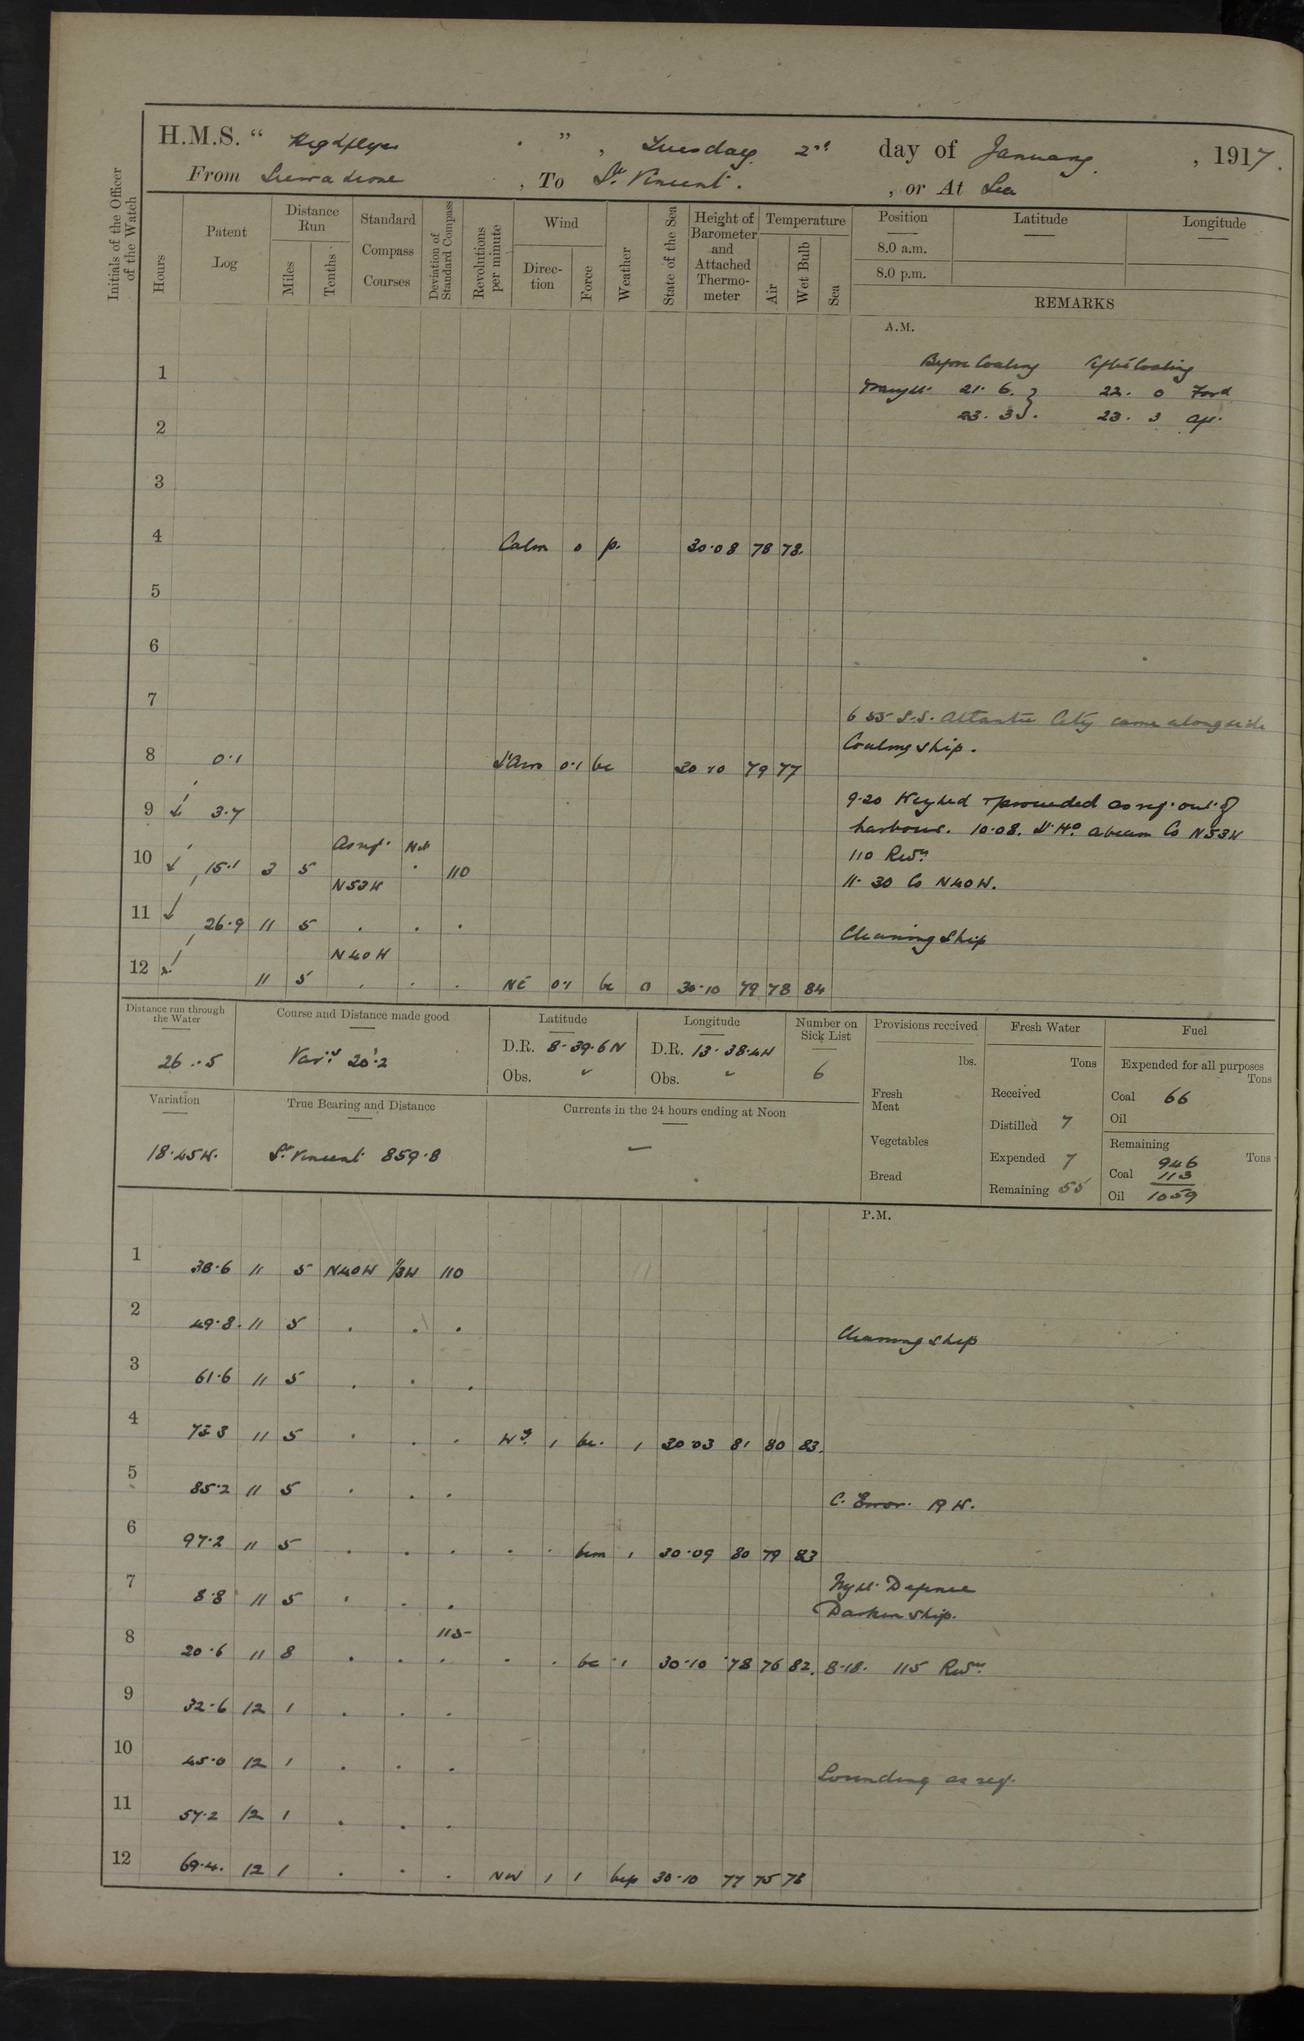 H.M.S. " Highflyer " , Tuesday 2nd day of January , 1917.
From Sierra Leone , To St. Vincent. , or At Sea
Initials of the Officer of the Watch
Hours
Patent Log
Distance Run
Miles Tenths
Standard Compass Courses
Deviation of Standard Compass
Revolutions per minute
Wind
Direc-tion Force
Weather
State of the Sea
Height of Barometer and Attached Thermo-meter
Temperature
Air Wet Bulb Sea
Position Latitude Longitude
8.0 a.m.
8.0 p.m.
REMARKS
A.M.
Before Coaling After Coaling
1 Draught 21. 6. } 22. 0 Ford
2 23. 3 } . 23. 3 Aft.
3
4 Calm 0 p. 30.08 78 78.
5
6
7
6 55 S.S. Atlantic City came alongside
8 0.1 0.1 bc 30.10 79 77 Coaling ship.
9 3.7 9.20 Weighed & proceeded as req. out of
harbour. 10.08. abeam Co N53W
10 15.1 3 5 As req. 110 110 Revs.
N53W 11.30 Co N40W.
11 26.9 11 5 . . . Cleaning Ship
N40W
12 11 5 . . . NE 0.1 bc 0 30.10 79 78 84
Distance run through the Water
26..5
Course and Distance made good
20.2
Latitude
D.R. 8-39.6N
Obs. "
Longitude
D.R. 13-38.4W
Obs. "
Number on Sick List
6
Provisions received
lbs.
Fresh Meat
Vegetables
Bread
Fresh Water
Tons
Received
Distilled 7
Expended 7
Remaining 55
Fuel
Expended for all purposes
Tons
Coal 66
Oil
Remaining
Tons
946
Coal 113
Oil 1059
Variation
18.45W.
True Bearing and Distance
St. Vincent 859.8
Currents in the 24 hours ending at Noon
P.M.
1 38.6 11 5 N40W 110
2 49.8. 11 5 . . . Cleaning ship
3 61.6 11 5 . . .
4 73.3 11 5 . . . 1 bc. 1 30.03 81 80 83.
5 85.2 11 5 . . . C. Error. 19 W.
6 97.2 11 5 . . . . . bcm 1 30.09 80 79 83
7 8.8 11 5 . . . Night Defence
Darken ship.
115
8 20.6 11 8 . . . . . bc 1 30.10 78 76 82. 8.18. 115 Revs.
9 32.6 12 1 . . .
10 45.0 12 1 . . . Sounding as req.
11 57.2 12 1 . . .
12 69.4. 12 1 . . . NW 1 1 bcp 30.10 77 75 78